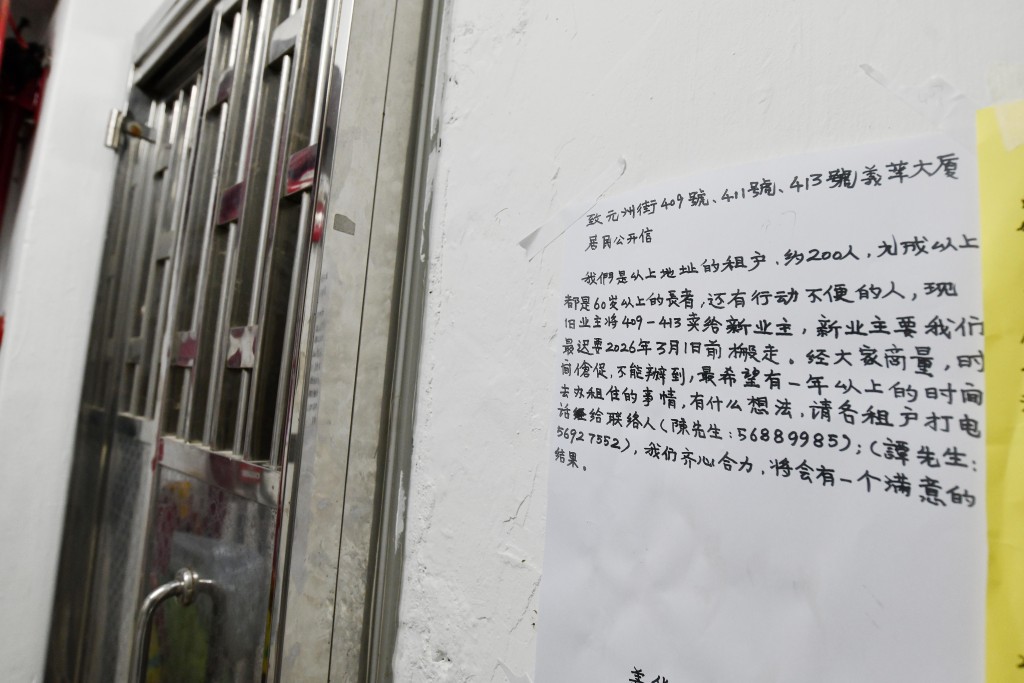 致元州街409號、411號、413號義華大厦
居民公开信
我們是以上地址的租户，约200人，九成以上
都是60岁以上的長者，还有行动不便的人，现
旧业主将409-413卖给新业主，新业主要我们
最迟要2026年3月1日前搬走。经大家商量，时
间傖促，不能辦到，最希望有一年以上的时间
去办租住的事情，有什么想法，请各租户打电
话给联络人(陳先生：56889985)；(譚先生：
56927552)，我们齐心合力，将会有一个满意的
结果。